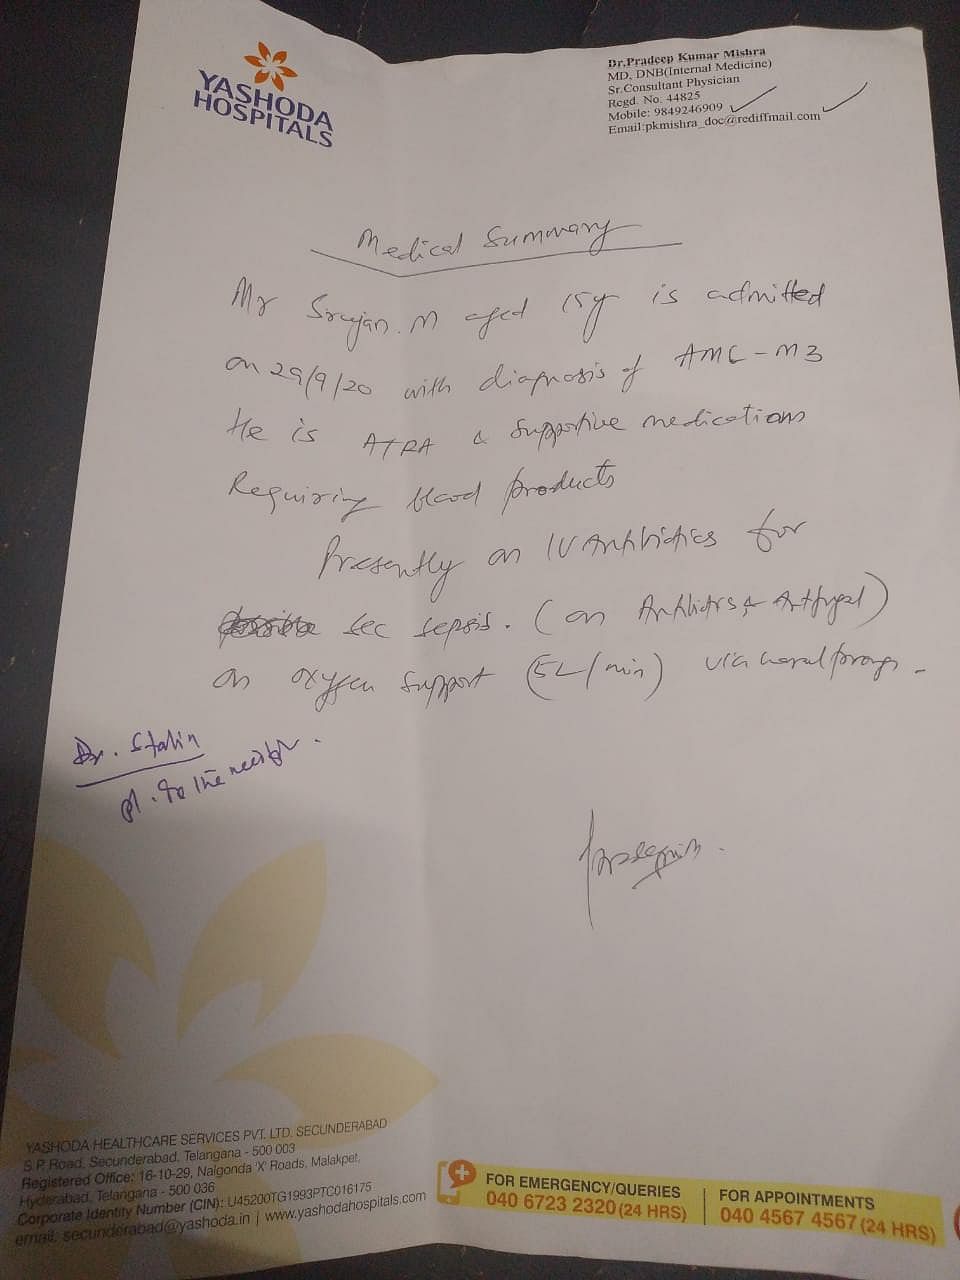 YASHODA
HOSPITALS
Dr.Pradeep Kumar Mishra
MD, DNB(Internal Medicine)
Sr.Consultant Physician
Regd. No. 44825
Mobile: 9849246909
Email:pkmishra_doc@rediffmail.com
Medical Summary
Mr Srujan. M aged 15y is admitted
on 29/9/20 with diagnosis of AML-M3
He is ATRA & supportive medications
Requiring blood products
Presently on IV Antibiotics for
sec sepsis. (on Antibiotics & Antifugal)
on oxygen support (5L/min) via nasal prongs.
Dr. Stalin
pl. do the needful.
YASHODA HEALTHCARE SERVICES PVT. LTD. SECUNDERABAD
S.P. Road, Secunderabad, Telangana - 500 003
Registered Office: 16-10-29, Nalgonda 'X' Roads, Malakpet,
Hyderabad, Telangana - 500 036
Corporate Identity Number (CIN): U45200TG1993PTC016175
email. secunderabad@yashoda.in | www.yashodahospitals.com
FOR EMERGENCY/QUERIES
040 6723 2320 (24 HRS)
FOR APPOINTMENTS
040 4567 4567 (24 HRS)